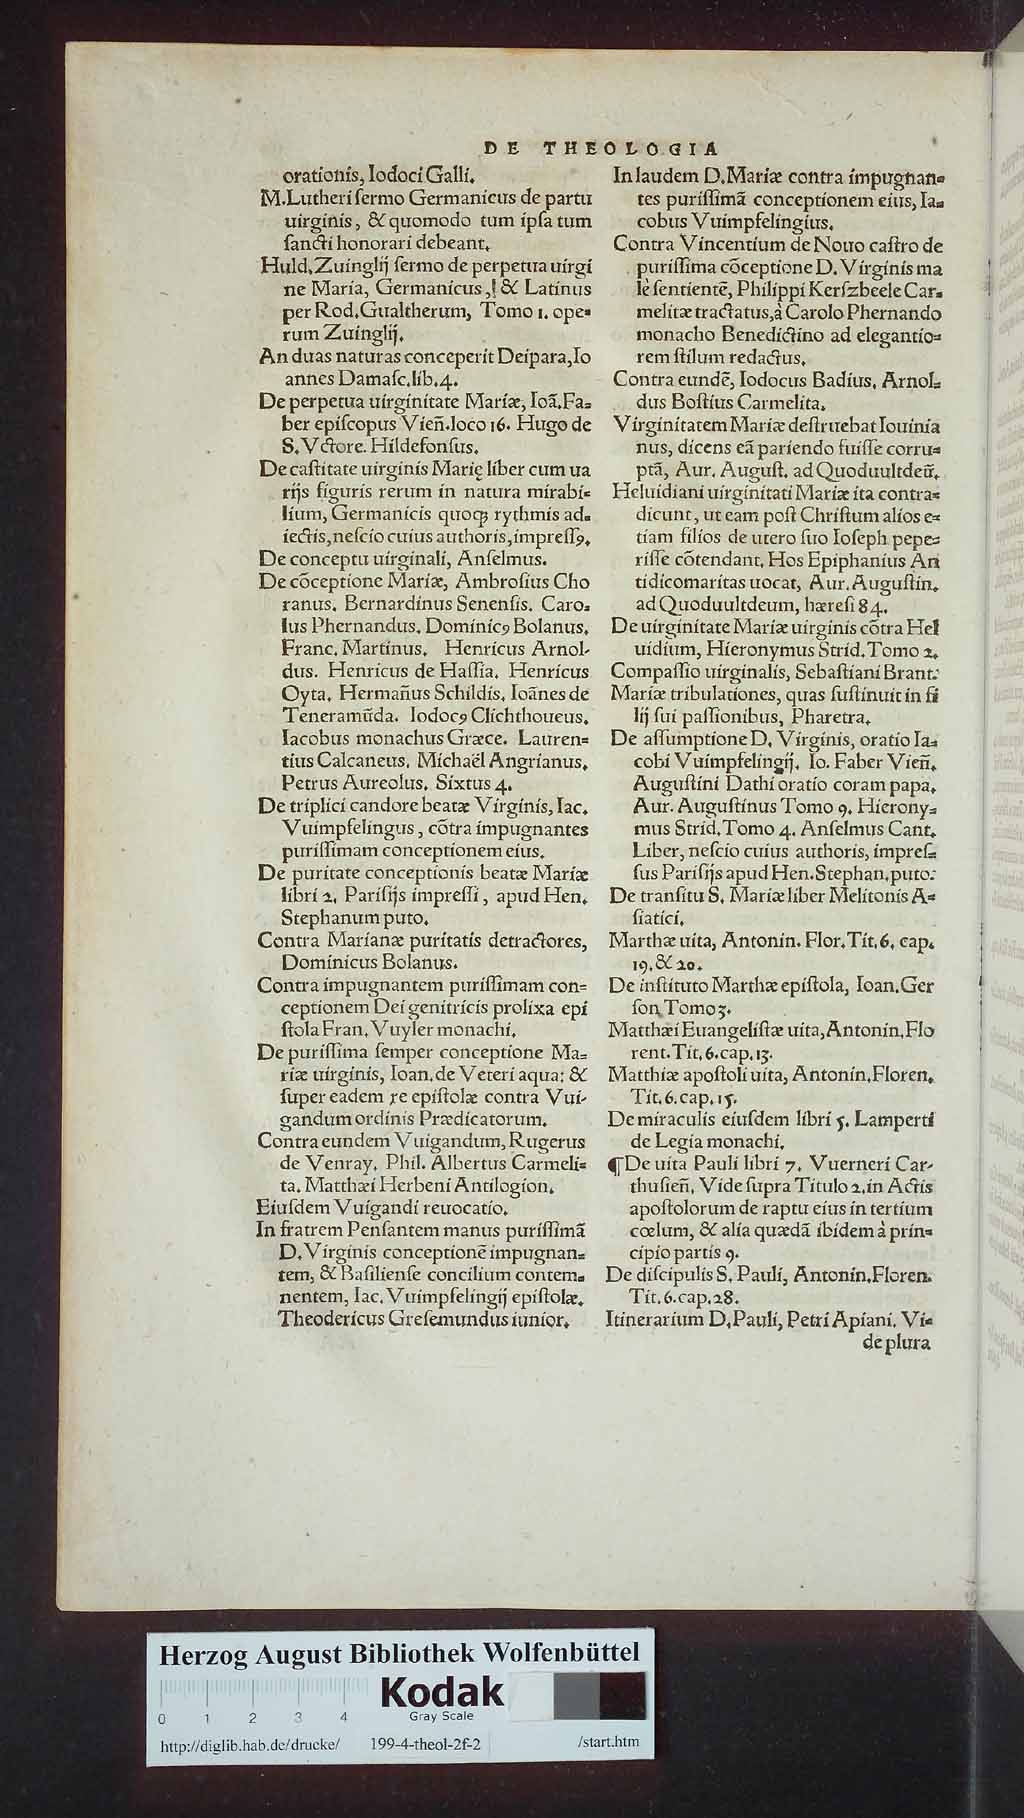 DE THEOLOGIA
orationis, Iodoci Galli.
M. Lutheri ſermo Germanicus de partu
uirginis, & quomodo tum ipſa tum
ſancti honorari debeant.
Huld. Zuinglij ſermo de perpetua uirgi
ne Maria, Germanicus, & Latinus
per Rod. Gualtherum, Tomo 1. ope-
rum Zuinglij.
An duas naturas conceperit Deipara, Io
annes Damaſc. lib. 4.
De perpetua uirginitate Mariæ, Ioã. Fa-
ber epiſcopus Vieñ. loco 16. Hugo de
S. Vctore. Hildefonſus.
De caſtitate uirginis Marię liber cum ua
rijs figuris rerum in natura mirabi-
lium, Germanicis quoq; rythmis ad-
iectis, neſcio cuius authoris, impreſſꝰ.
De conceptu uirginali, Anſelmus.
De cõceptione Mariæ, Ambroſius Cho
ranus. Bernardinus Senenſis. Caro-
lus Phernandus. Dominicꝰ Bolanus.
Franc. Martinus. Henricus Arnol-
dus. Henricus de Haſſia. Henricus
Oyta. Hermañus Schildis. Ioãnes de
Teneramũda. Iodocꝰ Clichthoueus.
Iacobus monachus Græce. Lauren-
tius Calcaneus. Michaël Angrianus.
Petrus Aureolus. Sixtus 4.
De triplici candore beatæ Virginis, Iac.
Vuimpfelingus, cõtra impugnantes
puriſſimam conceptionem eius.
De puritate conceptionis beatæ Mariæ
libri 2. Pariſijs impreſſi, apud Hen.
Stephanum puto.
Contra Marianæ puritatis detractores,
Dominicus Bolanus.
Contra impugnantem puriſſimam con-
ceptionem Dei genitricis prolixa epi
ſtola Fran. Vuyler monachi.
De puriſſima ſemper conceptione Ma-
riæ uirginis, Ioan. de Veteri aqua: &
ſuper eadem re epiſtolæ contra Vui-
gandum ordinis Prædicatorum.
Contra eundem Vuigandum, Rugerus
de Venray. Phil. Albertus Carmeli-
ta. Matthæi Herbeni Antilogion.
Eiuſdem Vuigandi reuocatio.
In fratrem Penſantem manus puriſſimã
D. Virginis conceptionẽ impugnan-
tem, & Baſilienſe concilium contem-
nentem, Iac. Vuimpfelingij epiſtolæ.
Theodericus Greſemundus iunior.
In laudem D. Mariæ contra impugnan-
tes puriſſimã conceptionem eius, Ia-
cobus Vuimpfelingius.
Contra Vincentium de Nouo caſtro de
puriſſima cõceptione D. Virginis ma
lè ſentientẽ, Philippi Kerſzbeele Car-
melitæ tractatus, à Carolo Phernando
monacho Benedictino ad elegantio-
rem ſtilum redactus.
Contra eundẽ, Iodocus Badius. Arnol-
dus Boſtius Carmelita.
Virginitatem Mariæ deſtruebat Iouinia
nus, dicens eã pariendo fuiſſe corru-
ptã, Aur. Auguſt. ad Quoduultdeũ.
Heluidiani uirginitati Mariæ ita contra-
dicunt, ut eam poſt Chriſtum alios e-
tiam filios de utero ſuo Ioſeph pepe-
riſſe cõtendant. Hos Epiphanius An
tidicomaritas uocat, Aur. Auguſtin.
ad Quoduultdeum, hæreſi 84.
De uirginitate Mariæ uirginis cõtra Hel
uidium, Hieronymus Strid. Tomo 2.
Compaſſio uirginalis, Sebaſtiani Brant.
Mariæ tribulationes, quas ſuſtinuit in fi
lij ſui paſſionibus, Pharetra.
De aſſumptione D. Virginis, oratio Ia-
cobi Vuimpfelingij. Io. Faber Vieñ.
Auguſtini Dathi oratio coram papa.
Aur. Auguſtinus Tomo 9. Hierony-
mus Strid. Tomo 4. Anſelmus Cant.
Liber, neſcio cuius authoris, impreſ-
ſus Pariſijs apud Hen. Stephan. puto.
De tranſitu S. Mariæ liber Melitonis A-
ſiatici.
Marthæ uita, Antonin. Flor. Tit. 6. cap.
19. & 20.
De inſtituto Marthæ epiſtola, Ioan. Ger
ſon Tomo 3.
Matthæi Euangeliſtæ uita, Antonin. Flo
rent. Tit. 6. cap. 13.
Matthiæ apoſtoli uita, Antonin. Floren.
Tit. 6. cap. 15.
De miraculis eiuſdem libri 5. Lamperti
de Legia monachi.
¶ De uita Pauli libri 7. Vuerneri Car-
thuſieñ. Vide ſupra Titulo 2. in Actis
apoſtolorum de raptu eius in tertium
cœlum, & alia quædã ibidem à prin-
cipio partis 9.
De diſcipulis S. Pauli, Antonin. Floren.
Tit. 6. cap. 28.
Itinerarium D. Pauli, Petri Apiani. Vi-
de plura
Herzog August Bibliothek Wolfenbüttel
Kodak
Gray Scale
0 1 2 3 4
http://diglib.hab.de/drucke/ 199-4-theol-2f-2 /start.htm